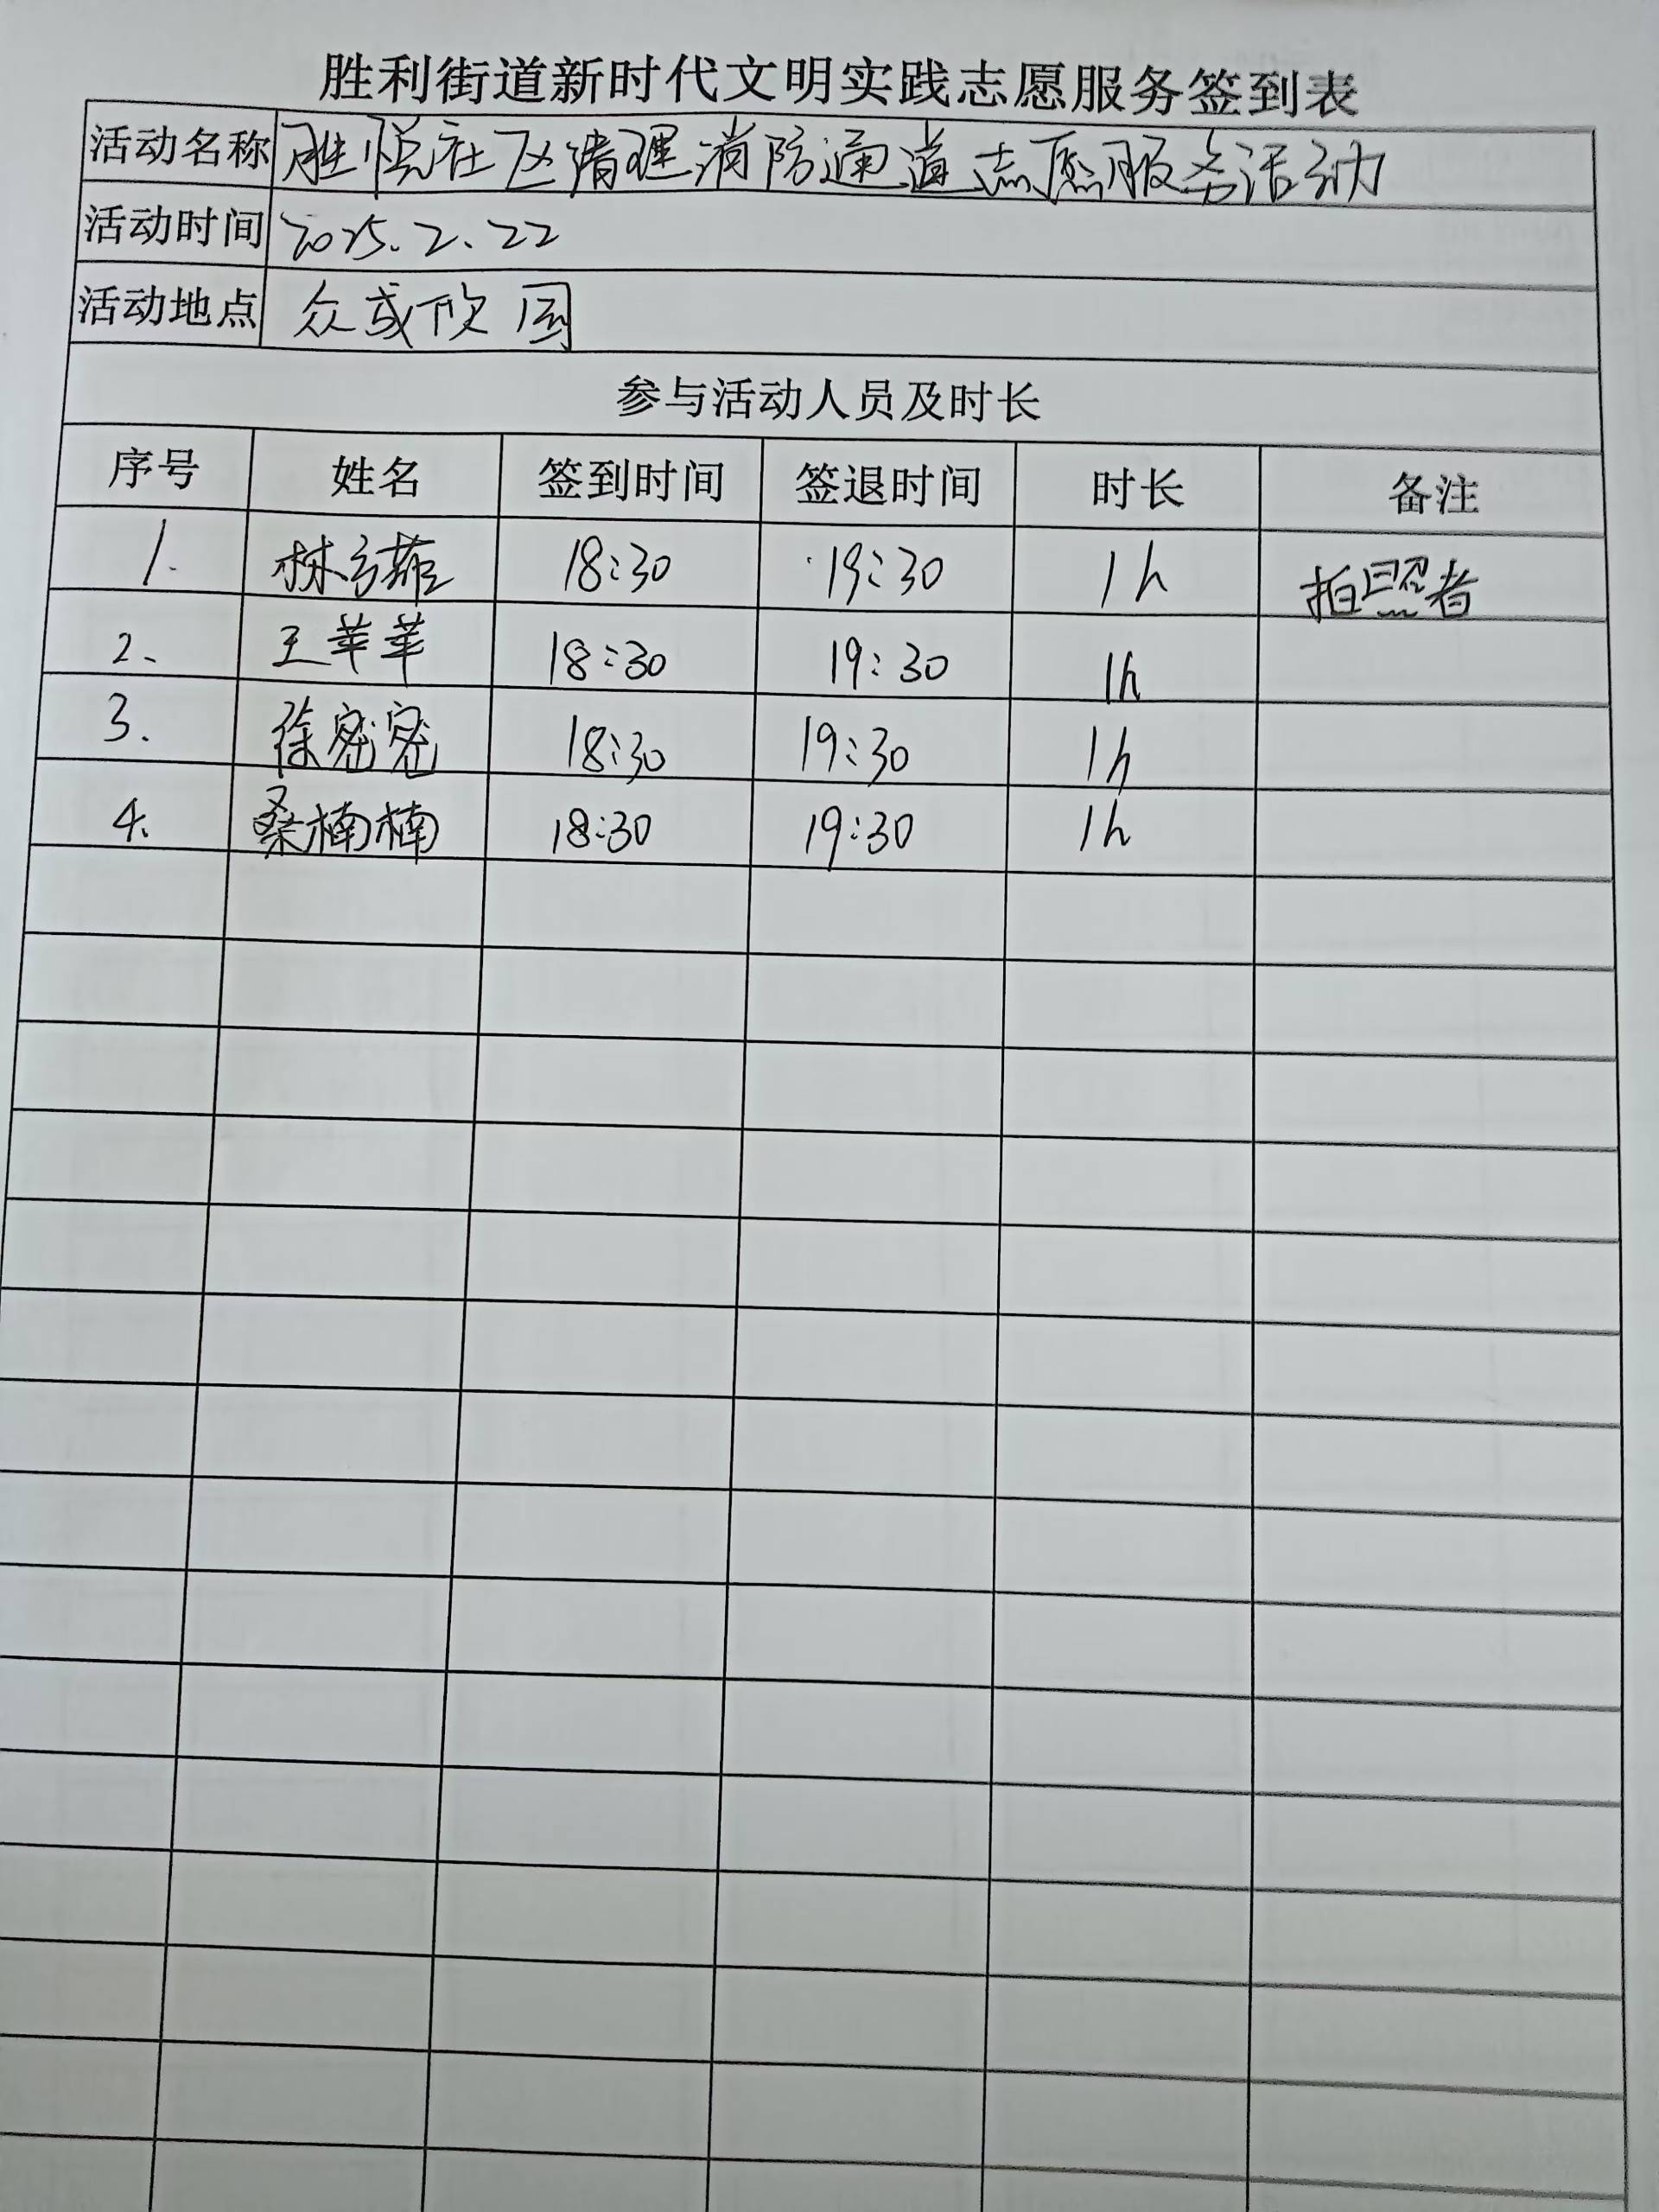 胜利街道新时代文明实践志愿服务签到表
活动名称 胜悦社区清理消防通道志愿服务活动
活动时间 2025.2.22
活动地点 众成欣园
参与活动人员及时长
序号 姓名 签到时间 签退时间 时长 备注
1. 林 18:30 19:30 1h 拍照者
2、 王苹苹 18:30 19:30 1h
3. 徐密密 18:30 19:30 1h
4. 桑楠楠 18:30 19:30 1h